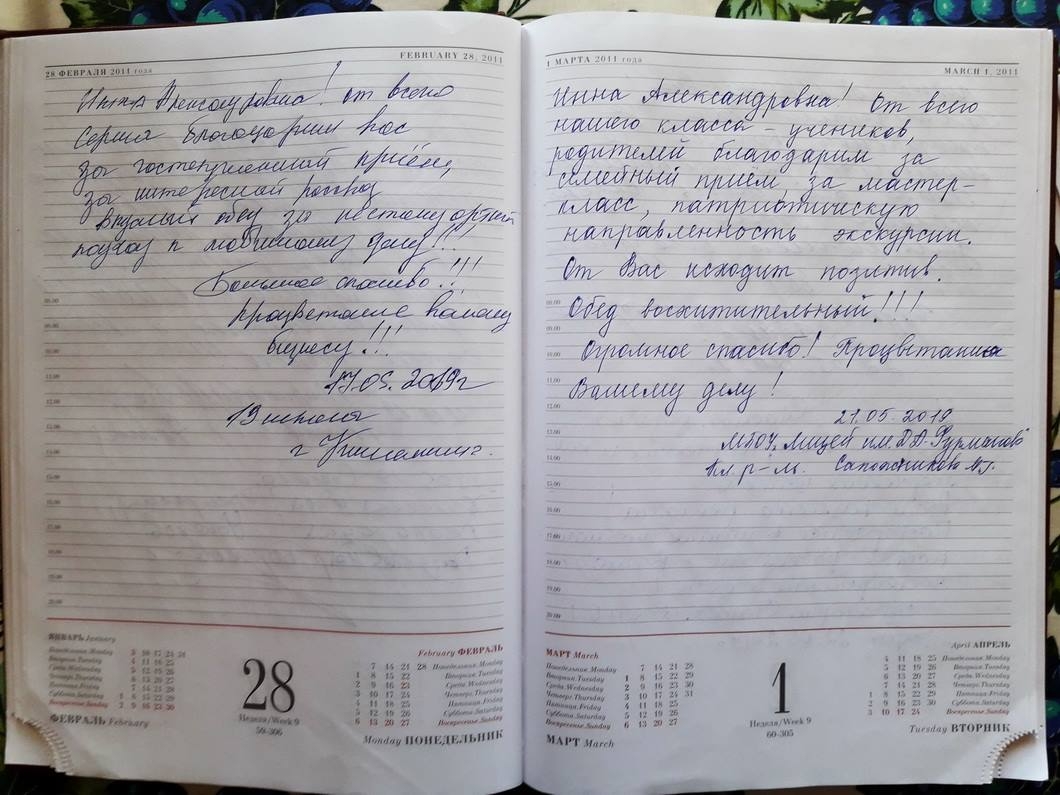 28 ФЕВРАЛЯ 2011 года
FEBRUARY 28, 2011
Инна Александровна! от всего
сердца благодарим Вас
за гостеприимный приём,
за интересный рассказ
вкусный обед за нестандартный
подход к любимому делу!!!
Большое спасибо!!!
процветание Вашему
бизнесу!!!
17.05.2019г
19 школа
г
08.00
09.00
10.00
11.00
12.00
13.00
14.00
15.00
16.00
17.00
18.00
19.00
20.00
ЯНВАРЬ January
Понедельник Monday 3 10 17 24 31
Вторник Tuesday 4 11 18 25
Среда Wednesday 5 12 19 26
Четверг Thursday 6 13 20 27
Пятница Friday 7 14 21 28
Суббота Saturday 1 8 15 22 29
Воскресенье Sunday 2 9 16 23 30
ФЕВРАЛЬ February
28
Неделя/Week 9
59-306
February ФЕВРАЛЬ
7 14 21 28 Понедельник Monday
1 8 15 22 Вторник Tuesday
2 9 16 23 Среда Wednesday
3 10 17 24 Четверг Thursday
4 11 18 25 Пятница Friday
5 12 19 26 Суббота Saturday
6 13 20 27 Воскресенье Sunday
Monday ПОНЕДЕЛЬНИК
1 МАРТА 2011 года
MARCH 1, 2011
Инна Александровна! От всего
нашего класса - учеников,
родителей благодарим за
семейный приём, за мастер-
класс, патриотическую
направленность экскурсии.
От Вас исходит позитив.
Обед восхитительный!!!
Огромное спасибо! Процветания
Вашему делу!
21.05.2019
МБОУ Лицей им. Д.А. Фурманова
Кл. р-ль
08.00
09.00
10.00
11.00
12.00
13.00
14.00
15.00
16.00
17.00
18.00
19.00
20.00
МАРТ March
Понедельник Monday 7 14 21 28
Вторник Tuesday 1 8 15 22 29
Среда Wednesday 2 9 16 23 30
Четверг Thursday 3 10 17 24 31
Пятница Friday 4 11 18 25
Суббота Saturday 5 12 19 26
Воскресенье Sunday 6 13 20 27
МАРТ March
1
Неделя/Week 9
60-305
April АПРЕЛЬ
4 11 18 25 Понедельник Monday
5 12 19 26 Вторник Tuesday
6 13 20 27 Среда Wednesday
7 14 21 28 Четверг Thursday
1 8 15 22 29 Пятница Friday
2 9 16 23 30 Суббота Saturday
3 10 17 24 Воскресенье Sunday
Tuesday ВТОРНИК